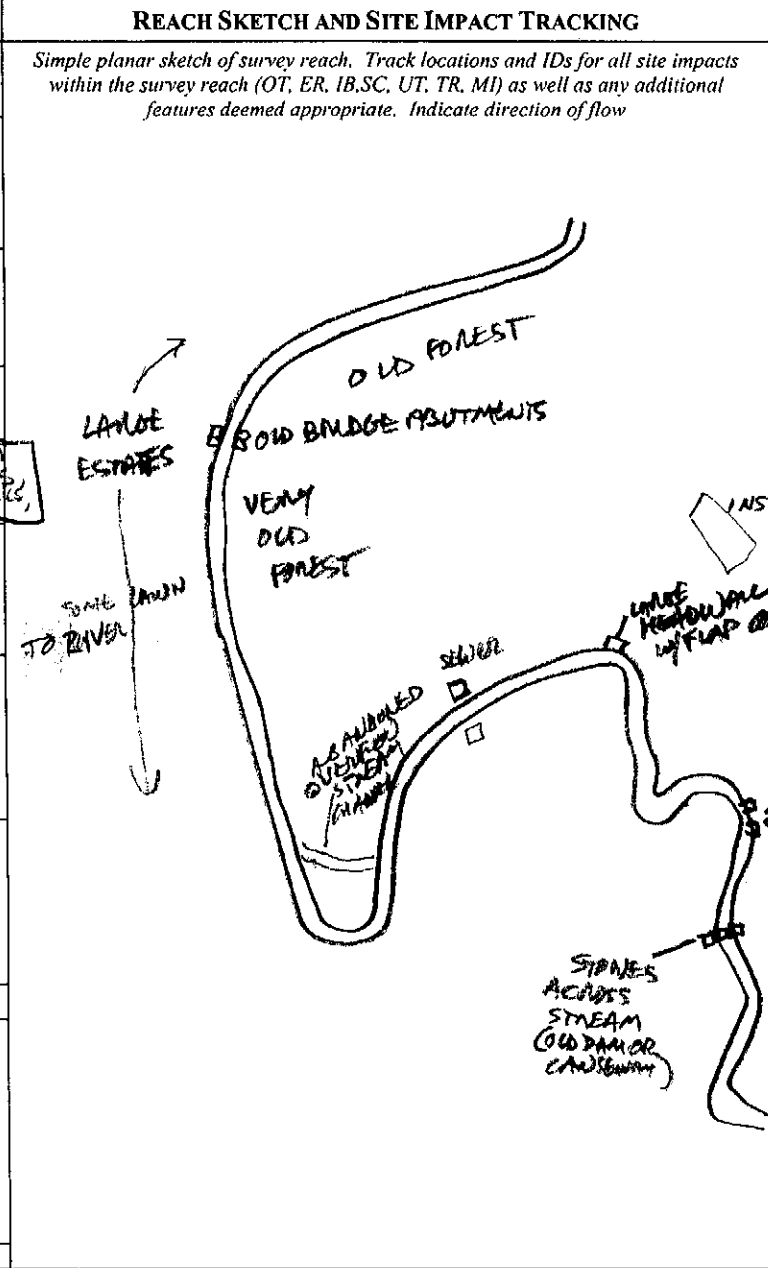 REACH SKETCH AND SITE IMPACT TRACKING
Simple planar sketch of survey reach. Track locations and IDs for all site impacts
within the survey reach (OT, ER, IB,SC, UT, TR, MI) as well as any additional
features deemed appropriate. Indicate direction of flow
OLD FOREST
LARGE
ESTATES
OLD BRIDGE ABUTMENTS
VERY
OLD
FOREST
INS
SOME LAWN
TO RIVER
LARGE
HEADWALL
W/ FLAP
SEWER
ABANDONED
OVERFLOW
STREAM
CHANNEL
STONES
ACROSS
STREAM
(OLD DAM OR
CAUSEWAY)